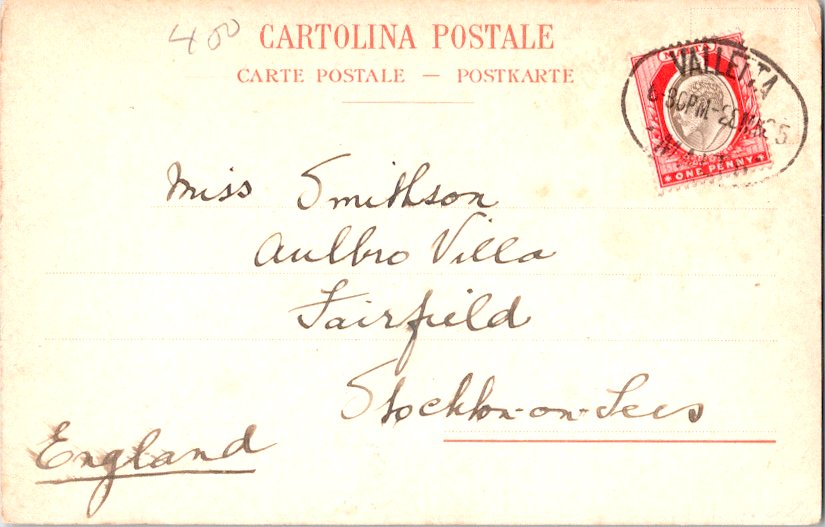 400
CARTOLINA POSTALE
CARTE POSTALE — POSTKARTE
MALTA
VALLETTA
ONE PENNY
Miss Smithson
Aullbro Villa
Fairfield
Stockton-on-Tees
England